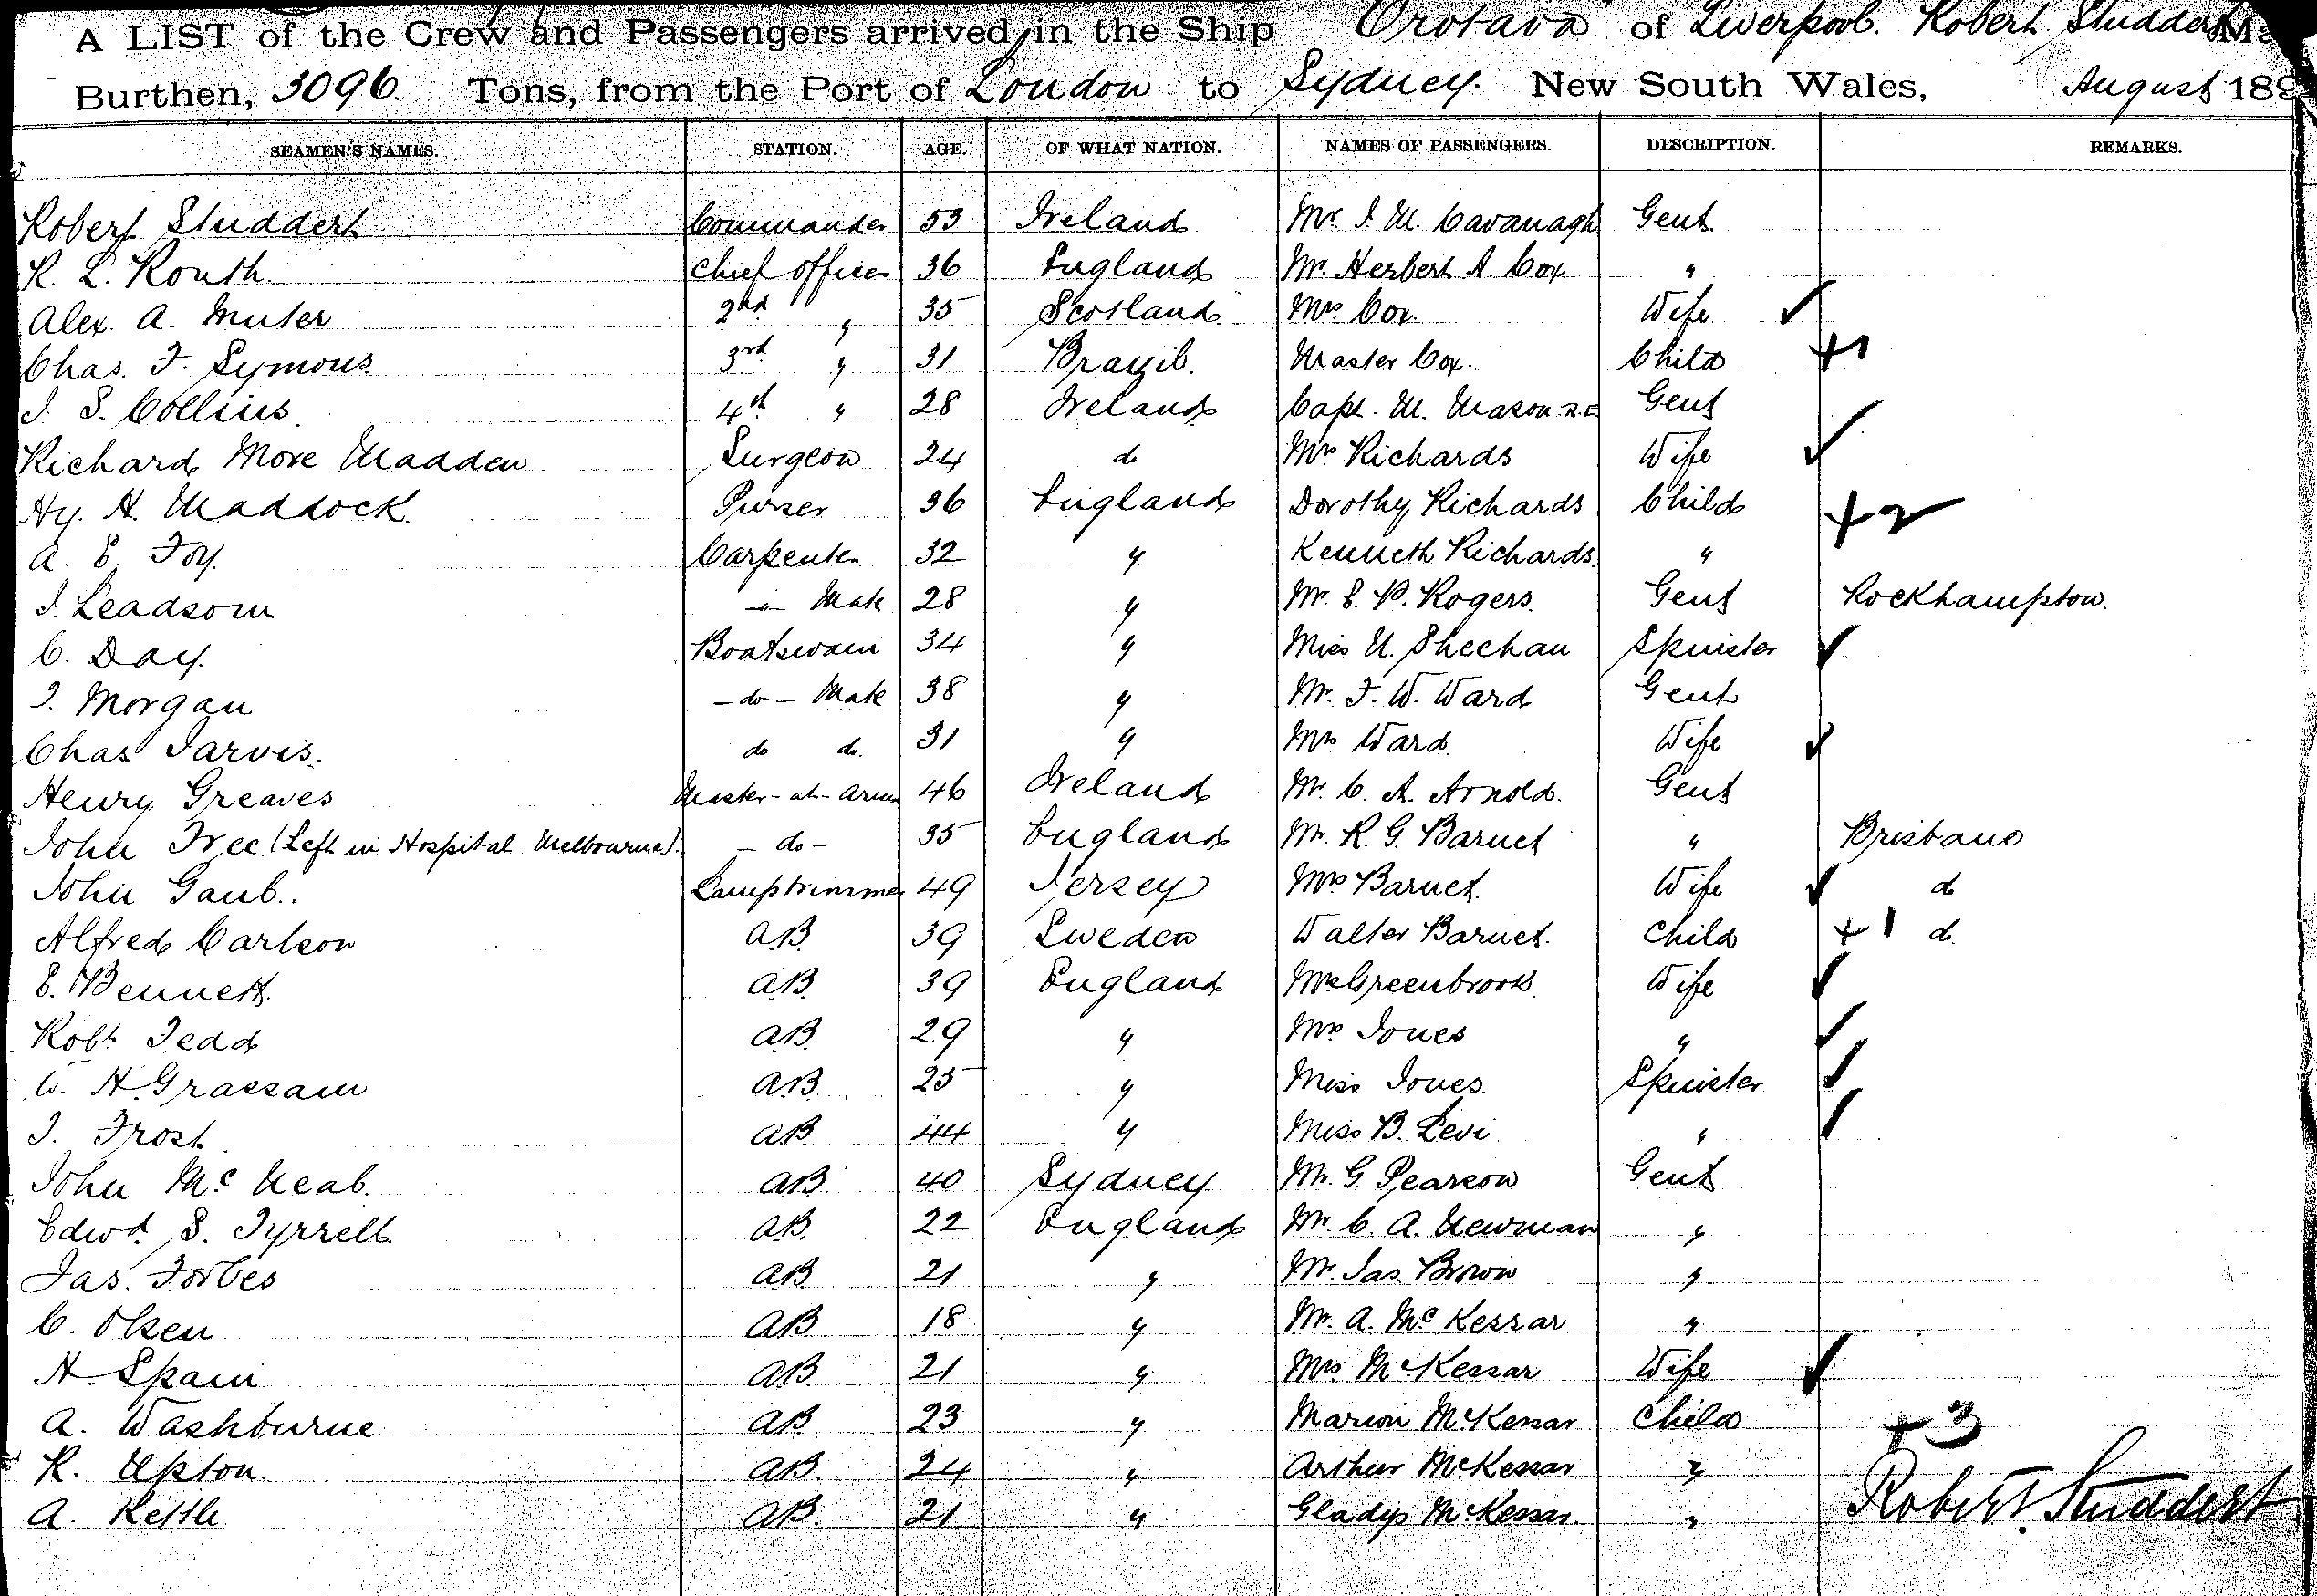 A LIST of the Crew and Passengers arrived in the Ship "Orotava" of Liverpool. Robert Studdert Ma
Burthen, 3096 Tons, from the Port of London to Sydney. New South Wales, August 189
SEAMEN'S NAMES. STATION. AGE. OF WHAT NATION. NAMES OF PASSENGERS. DESCRIPTION. REMARKS.
Robert Studdert Commander 53 Ireland Mr. J. M. Cavanagh Gent.
R. L. Routh Chief Officer 36 England Mr. Herbert A Cox "
Alex. A. Muter 2nd " 35 Scotland Mrs Cox. Wife ✓
Chas. F. Symons 3rd " 31 Brazil. Master Cox. Child +1
J. S. Collins 4th " 28 Ireland Capt. M. Mason R.E Gent
Richard More Madden Surgeon 24 do Mrs Richards Wife ✓
Hy. A. Maddock. Purser 36 England Dorothy Richards Child +2
A. E. Foy. Carpenter 32 " Kenneth Richards "
J. Leadsom -"- Mate 28 " Mr. E. P. Rogers. Gent Rockhampton.
C. Day. Boatswain 34 " Miss N. Sheehan Spinster ✓
J. Morgan -do- Mate 38 " Mr. F. W. Ward Gent
Chas Jarvis. do do. 31 " Mrs Ward. Wife ✓
Henry Greaves Master-at-Arms 46 Ireland Mr. C. A. Arnold. Gent
John Free. (Left in Hospital Melbourne). -do- 35 England Mr. R. G. Barnet " Brisbane
John Gaub.. Lamptrimmer 49 Jersey Mrs Barnet. Wife ✓ do
Alfred Carlson A.B. 39 Sweden Walter Barnet. Child +1 do.
E. Bennett. A.B. 39 England Mrs Greenbrook. Wife ✓
Robt. Tedd A.B. 29 " Mrs Jones " ✓
W. H. Grassam A.B. 25 " Miss Jones. Spinster ✓
J. Frost A.B. 44 " Miss B. Levi "
John McNeal. A.B. 40 Sydney Mr. G. Pearson Gent
Edwd. S. Tyrrell. A.B. 22 England Mr. C. A. Newman "
Jas. Forbes A.B. 21 " Mr. Jas. Brown "
C. Olsen A.B. 18 " Mr. A. McKessar "
H. Spain A.B. 21 " Mrs McKessar Wife ✓
A. Washburne A.B. 23 " Marion McKessar Child +3
R. Upton A.B. 24 " Arthur McKessar "
A. Kettle A.B. 21 " Gladys McKessar. " Robert Studdert